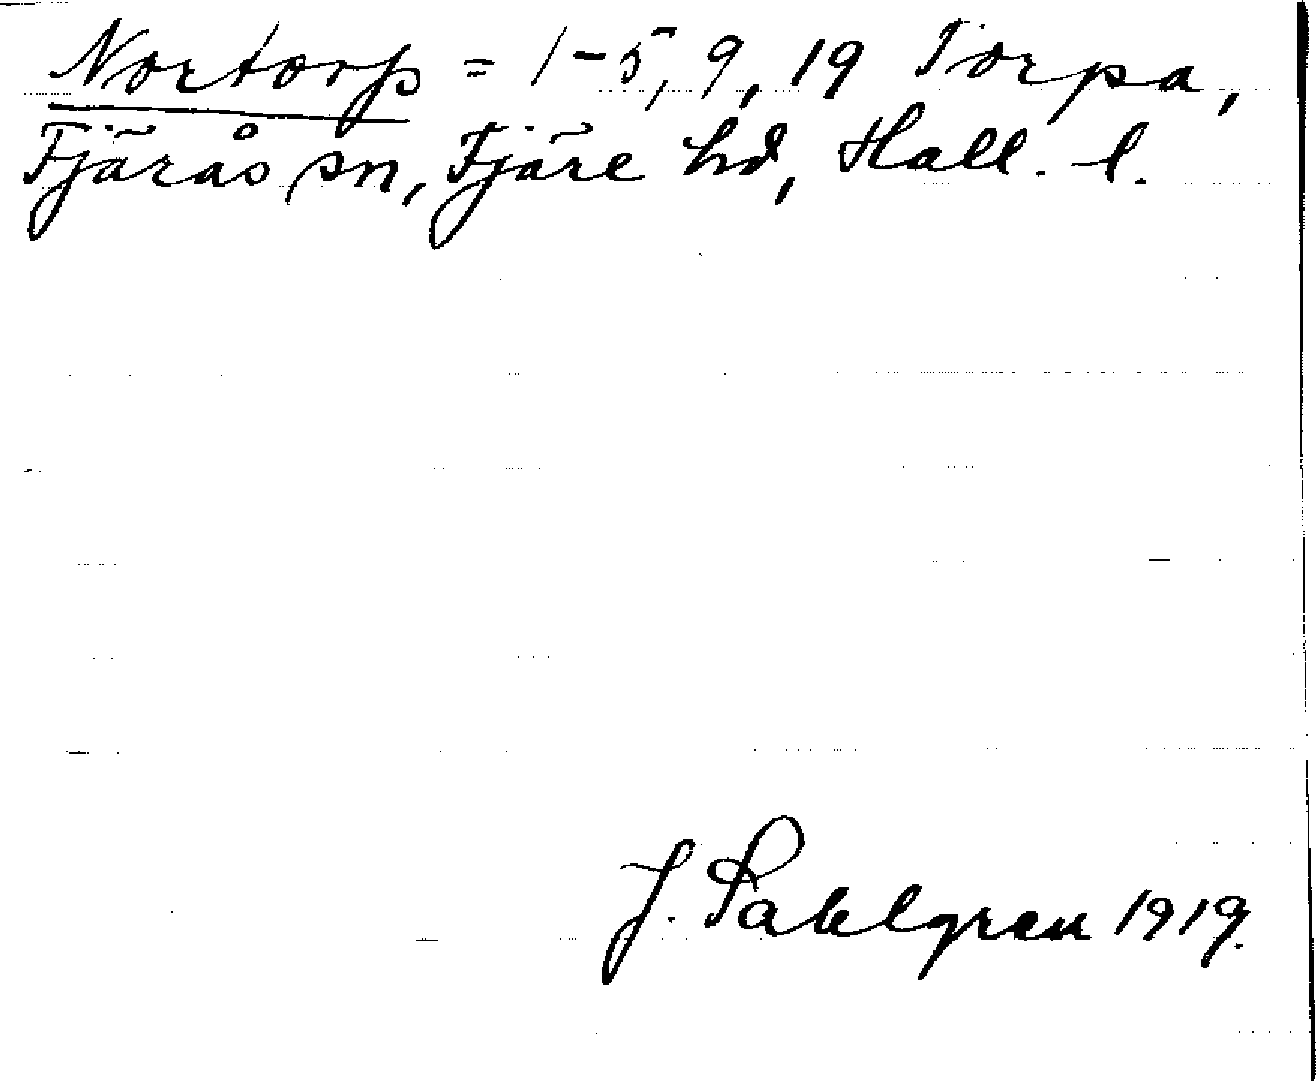 Nortorp = 1-5, 9, 19 Torpa,
Fjärås sn, Fjäre hd, Hall. l.
J. Sahlgren 1919.